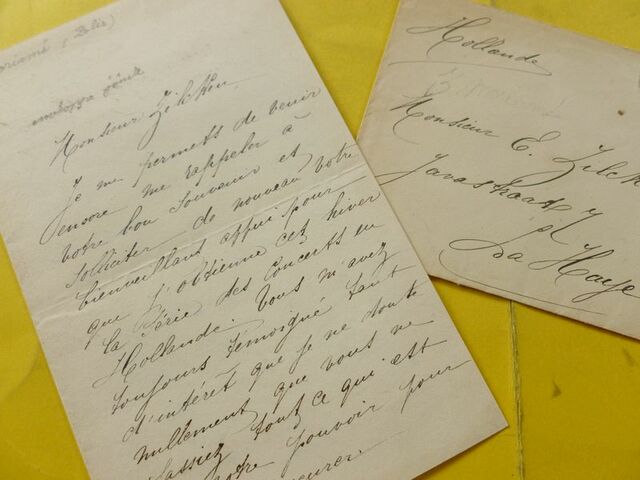 (Solis)
Monsieur Zilcken,
Je me permets de venir
encore me rappeler à
votre bon souvenir et
solliciter de nouveau votre
bienveillant appui pour
que j'obtienne cet hiver
la Série des Concerts en
Hollande. Vous m'avez
toujours témoigné tant
d'intérêt que je ne doute
nullement que vous ne
fassiez tout ce qui est
votre pouvoir pour
Hollande
Monsieur E. Zilck
Javastraat
La Haye